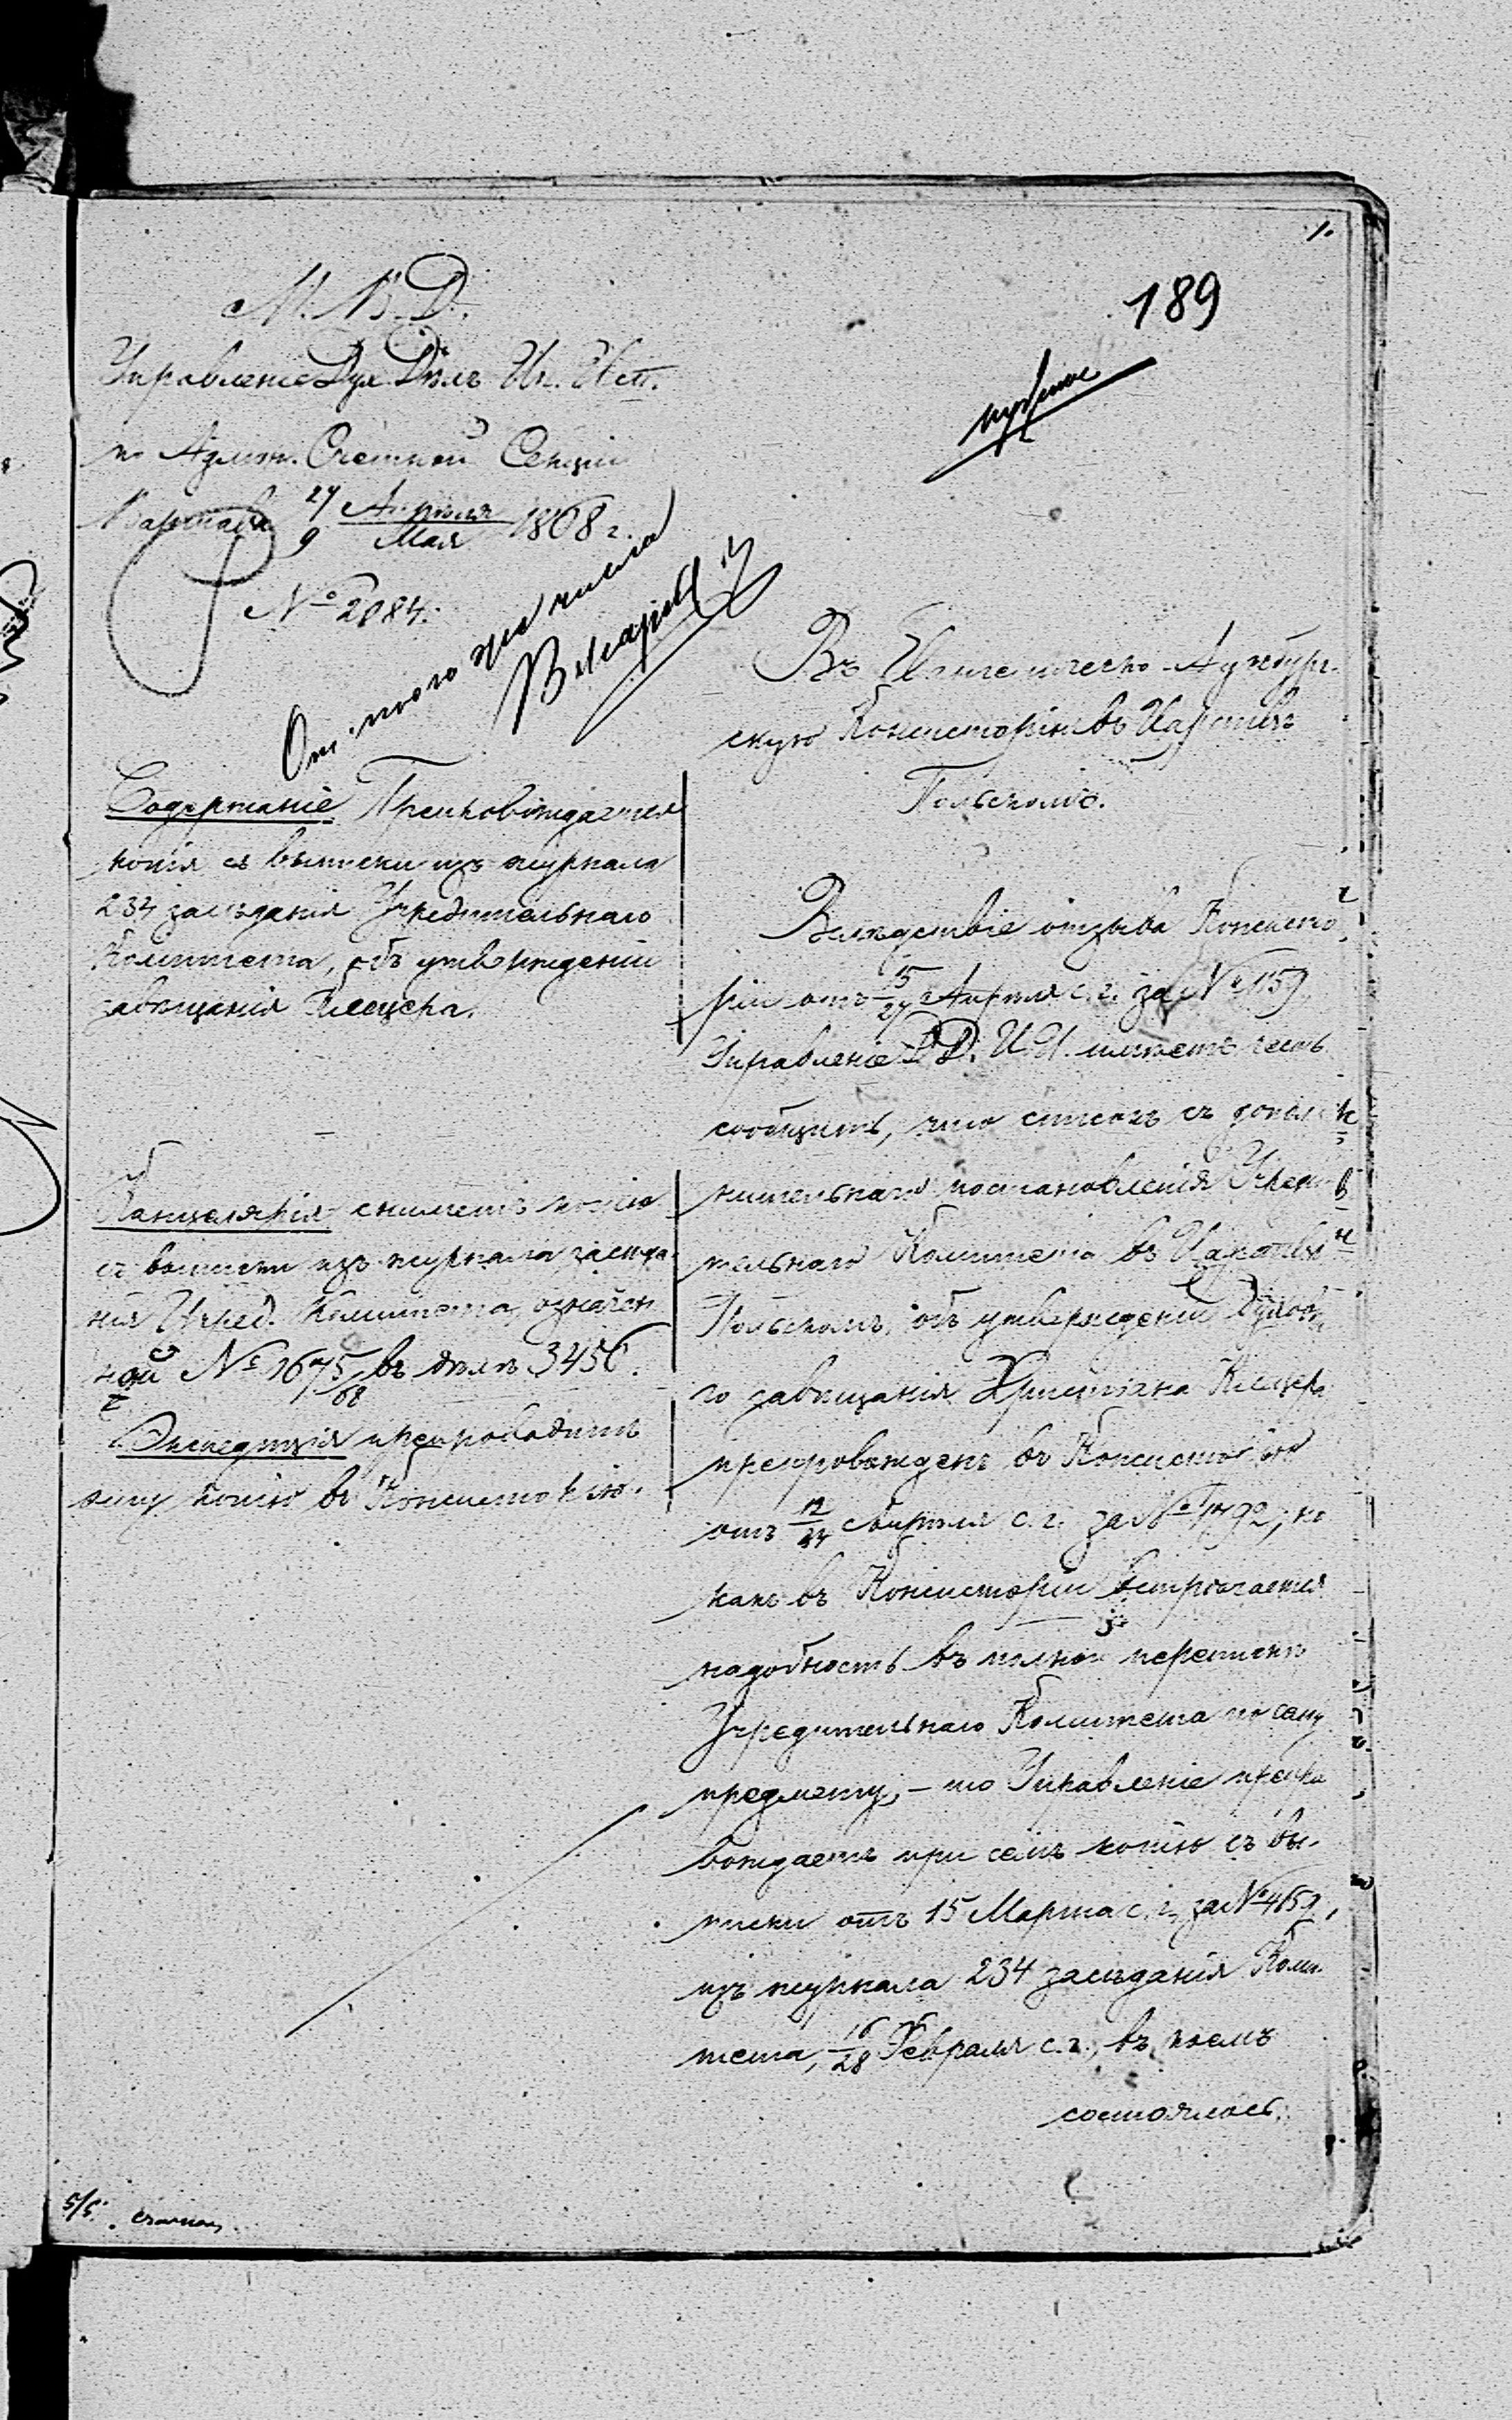 1.
189
М. В. Д.
Управленіе Дух. Дѣлъ Ин. Исп.
по Админ. Счетной Секціи
Варшава 27 Апрѣля / 9 Мая 1868 г.
№ 2084.
Отъ того же числа
Въ Евангелическо-Аугсбург-
скую Консисторію въ Царствѣ
Польскомъ.
Содержаніе. Препровождается
копія съ выписки изъ журнала
234 засѣданія Учредительнаго
Комитета, объ утвержденіи
завѣщанія
Канцелярія сниметъ копію
съ выписки изъ журнала засѣда-
нія Учред. Комитета, означен
ной № 1675/68 въ дѣлѣ 3456.
Экспедиція препроводитъ
сину копію въ Консисторію.
Вслѣдствіе отзыва Консисто
ріи отъ 15/27 Апрѣля с. г. за № 1159,
Управленіе Д. Д. И. И. имѣетъ честь
сообщить, что списокъ съ допол
нительнаго постановленія Учреди
тельнаго Комитета въ Царствѣ
Польскомъ, объ утвержденіи духовн
го завѣщанія Христіана
препровожденъ въ Консисторію
отъ 12/24 Апрѣля с. г. за № 1792; но
какъ въ Консисторіи встрѣчается
надобность въ полной перепискѣ
Учредительнаго Комитета по сему
предмету, – то Управленіе препро
вождаетъ при семъ копію съ вы-
писки отъ 15 Марта с. г. за № 4659,
изъ журнала 234 засѣданія Коми
тета, 16/28 Февраля с. г., въ коемъ
состоялось
5/5.